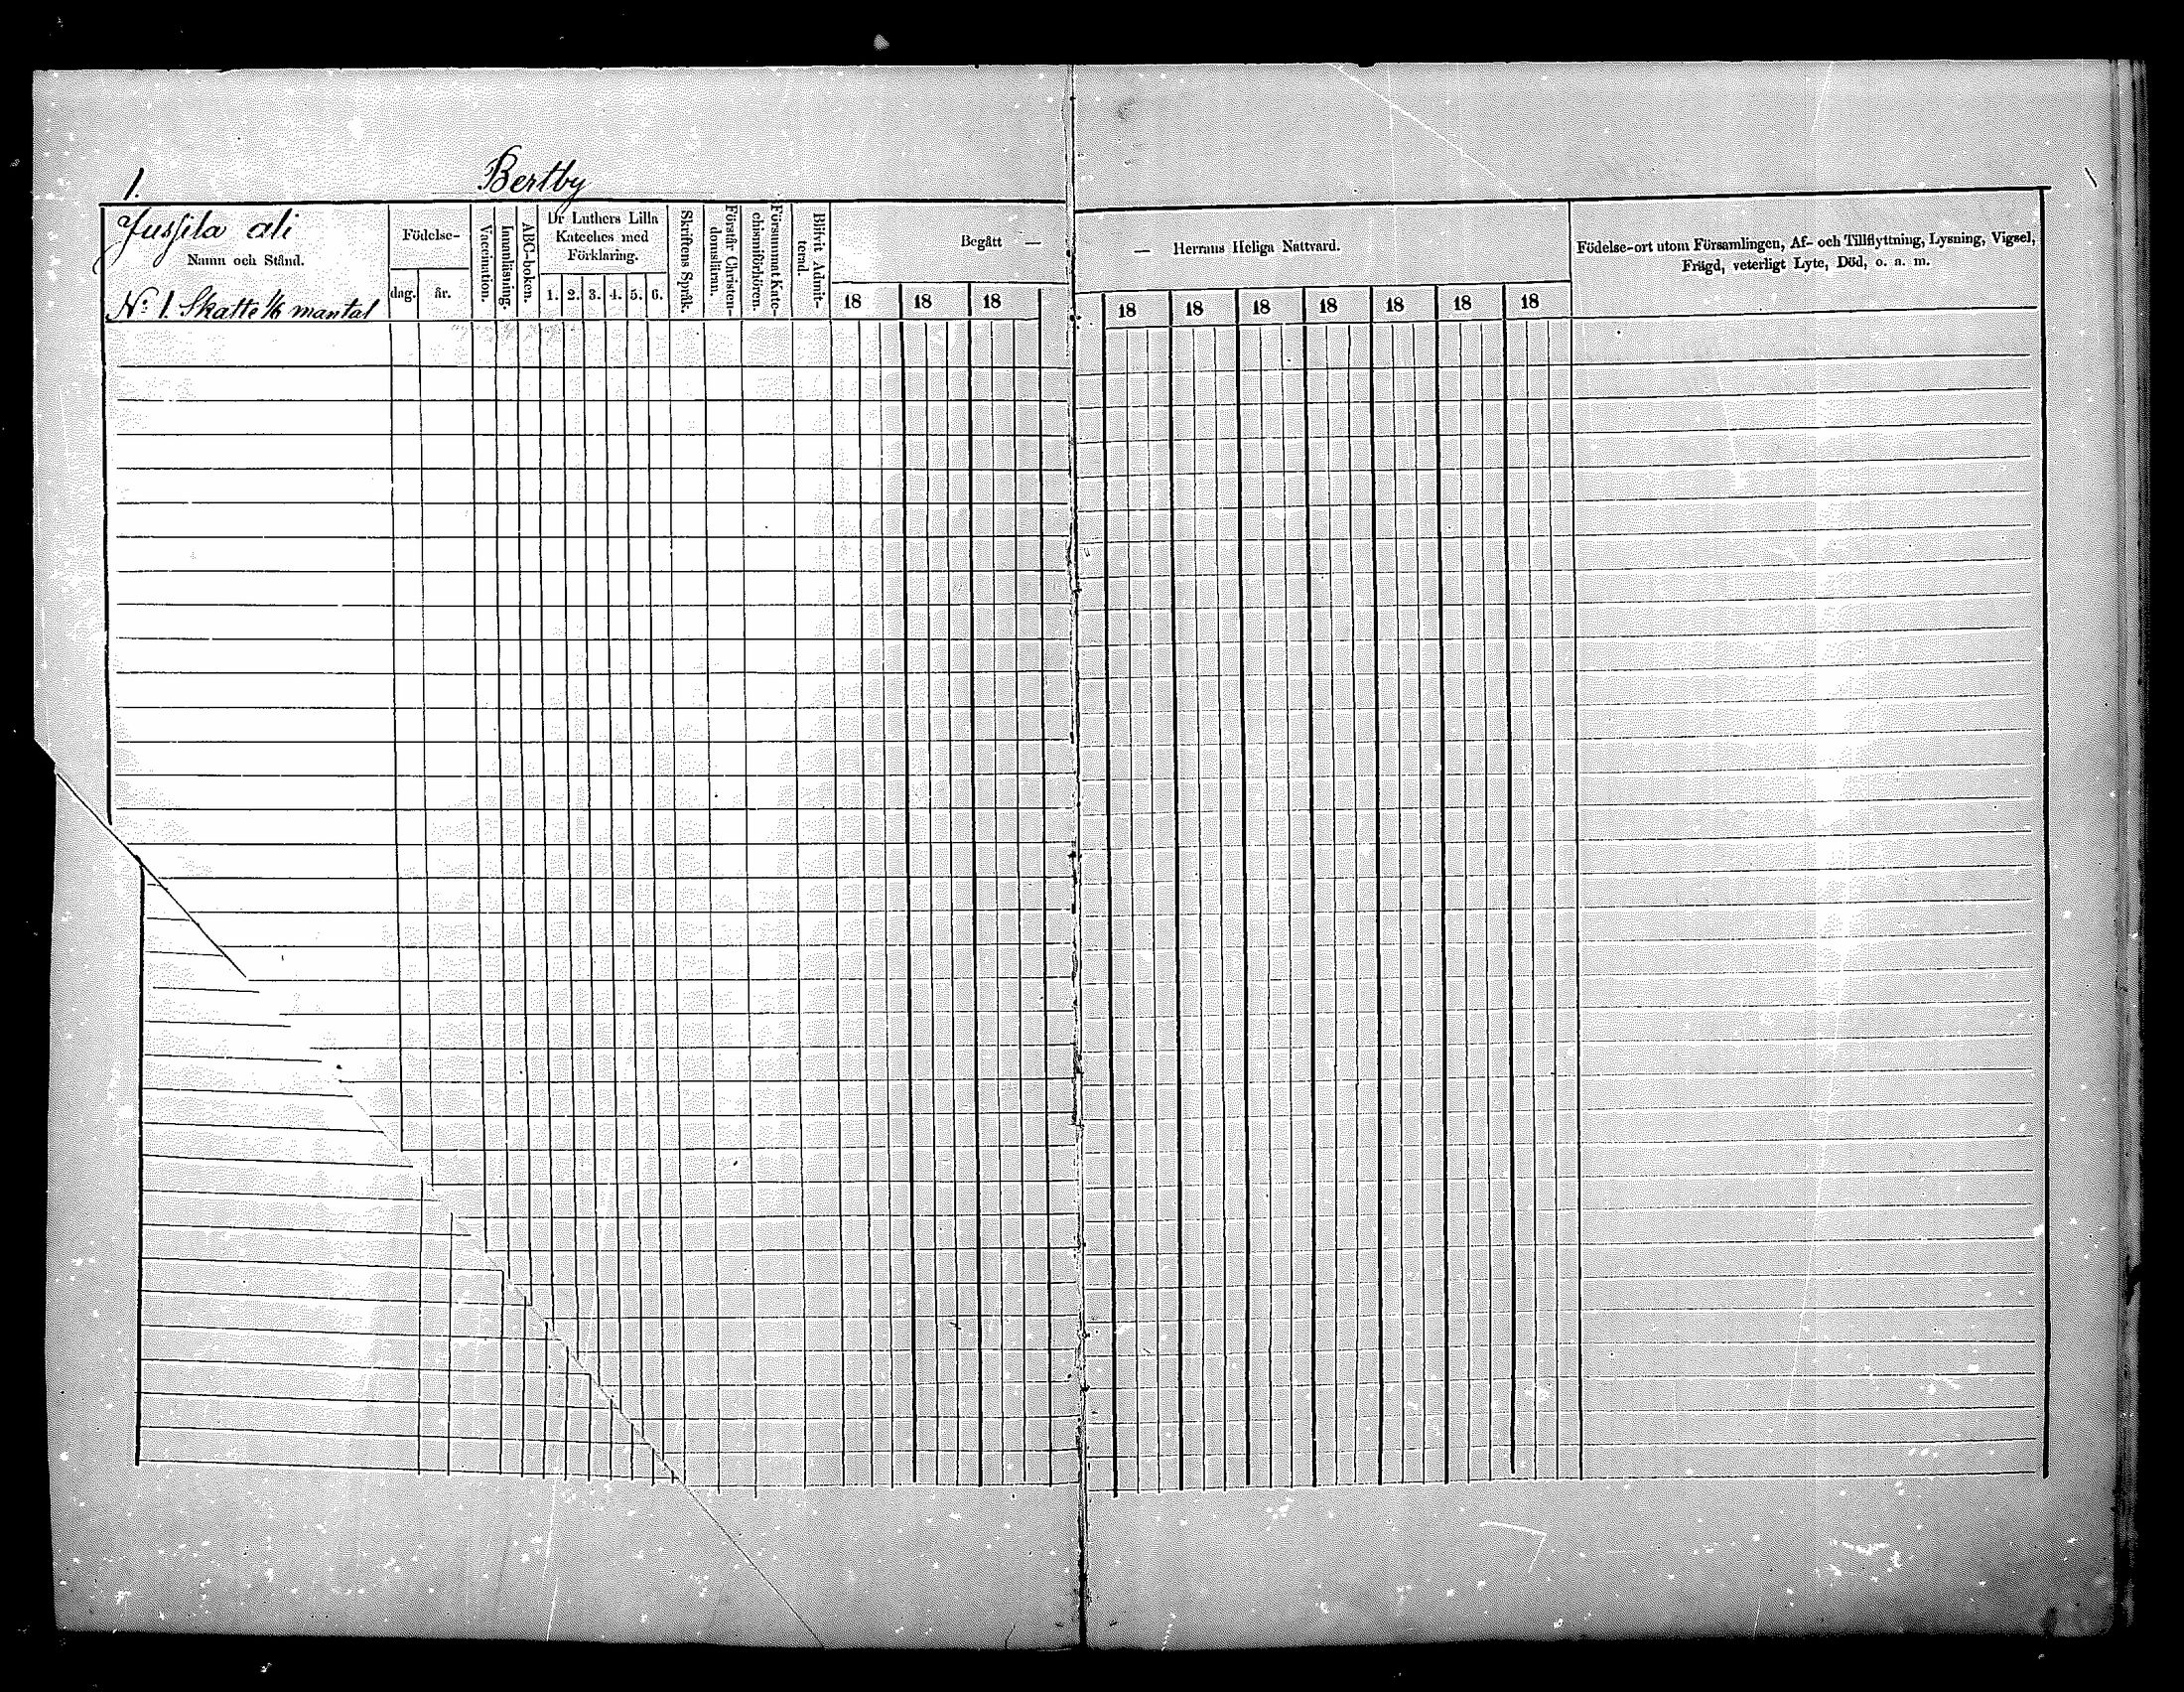 1.
Bertby
Jussila ali
Namn och Stånd.
No 1. Skatte 1/6 mantal
Födelse-
dag.
år.
Vaccination.
Innanläsning.
ABC-boken.
Dr Luthers Lilla
Kateches med
Förklaring.
1. 2. 3. 4. 5. 6.
Skriftens Språk.
Förstår Christen-
domsläran.
Försummat Kate-
chismiförhören.
Blifvit Admit-
terad.
Begått —
18 18 18
— Herrans Heliga Nattvard.
18 18 18 18 18 18 18
Födelse-ort utom Församlingen, Af- och Tillflyttning, Lysning, Vigsel,
Frägd, veterligt Lyte, Död, o. a. m.